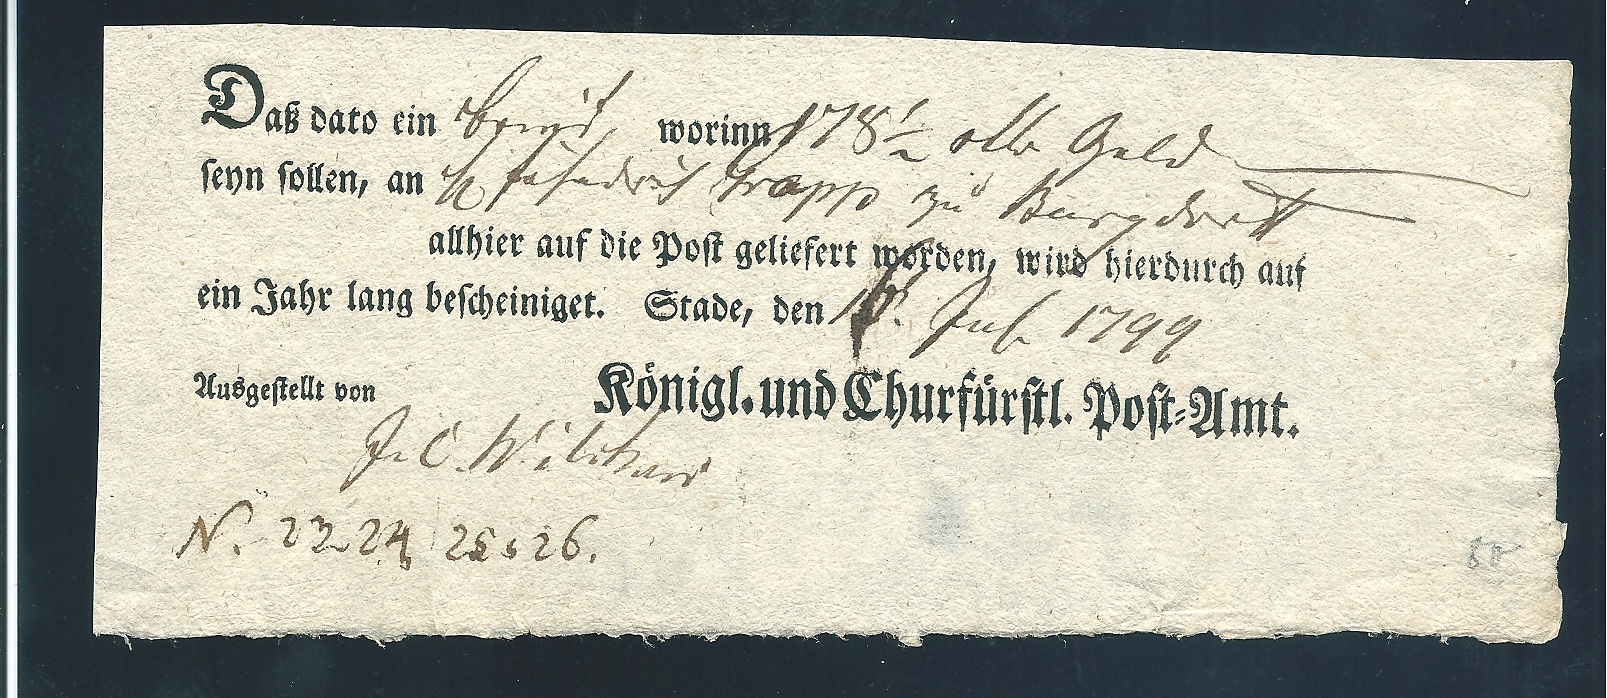 Daß dato ein Brief, worinn 178½ rthlr Geld
seyn sollen, an H Friedrich Trapp zu Burgdorff
allhier auf die Post geliefert worden, wird hierdurch auf
ein Jahr lang bescheiniget. Stade, den Jul. 1799
Ausgestellt von Königl. und Churfürstl. Post-Amt.
J. C.
N. 23 24 25 26.